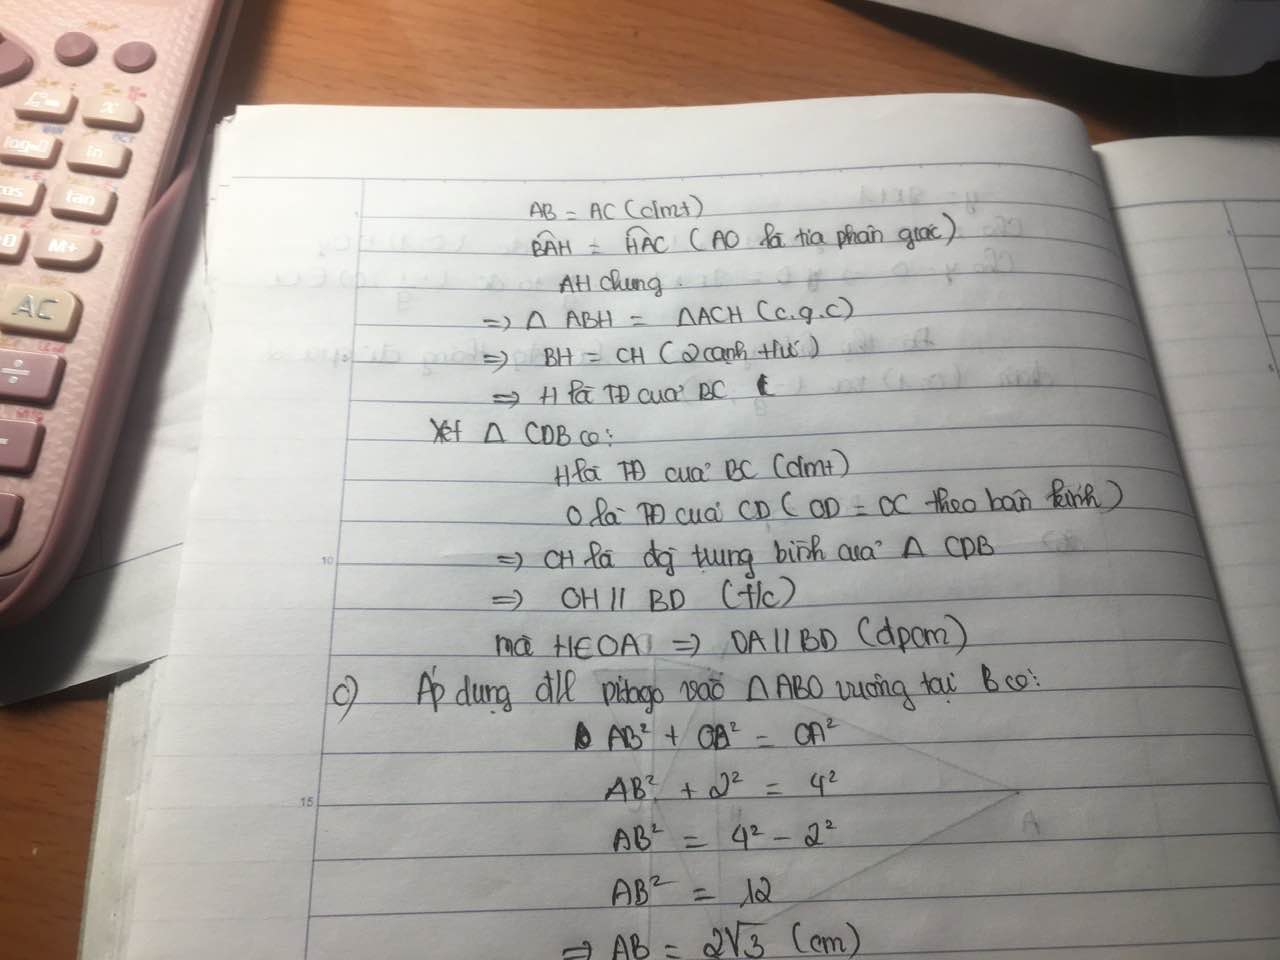 AB = AC (cmt)
BÂH = HÂC (AO là tia phân giác)
AH chung.
=> Δ ABH = ΔACH (c.g.c)
=> BH = CH (2 cạnh t/ứ)
=> H là TĐ của BC
Xét Δ CDB có:
H là TĐ của BC (cmt)
O là TĐ của CD (OD = OC theo bán kính)
=> OH là đg trung bình của Δ CDB
=> OH // BD (t/c)
mà H∈OA => OA // BD (đpcm)
c) Áp dụng đ/l pitago vào Δ ABO vuông tại B có:
AB² + OB² = OA²
AB² + 2² = 4²
AB² = 4² - 2²
AB² = 12
=> AB = 2√3 (cm)
10
15
A
AC
M+
÷
tan
ln
x